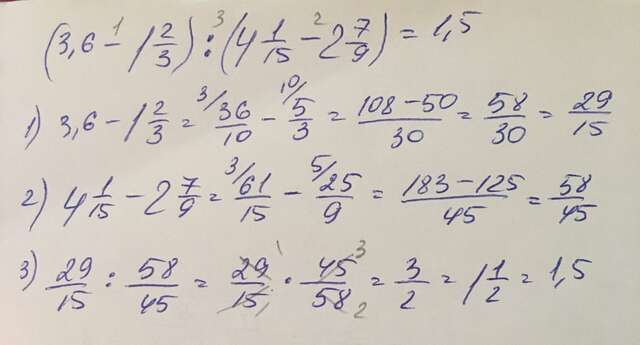 (3,6 - 1 2/3) : (4 1/15 - 2 7/9) = 1,5
1) 3,6 - 1 2/3 = 36/10 - 5/3 = (108-50)/30 = 58/30 = 29/15
2) 4 1/15 - 2 7/9 = 61/15 - 25/9 = (183-125)/45 = 58/45
3) 29/15 : 58/45 = 29/15 · 45/58 = 3/2 = 1 1/2 = 1,5